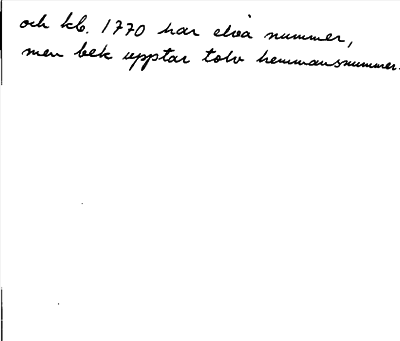 och kb. 1770 har elva nummer,
men bek upptar tolv hemmansnummer.